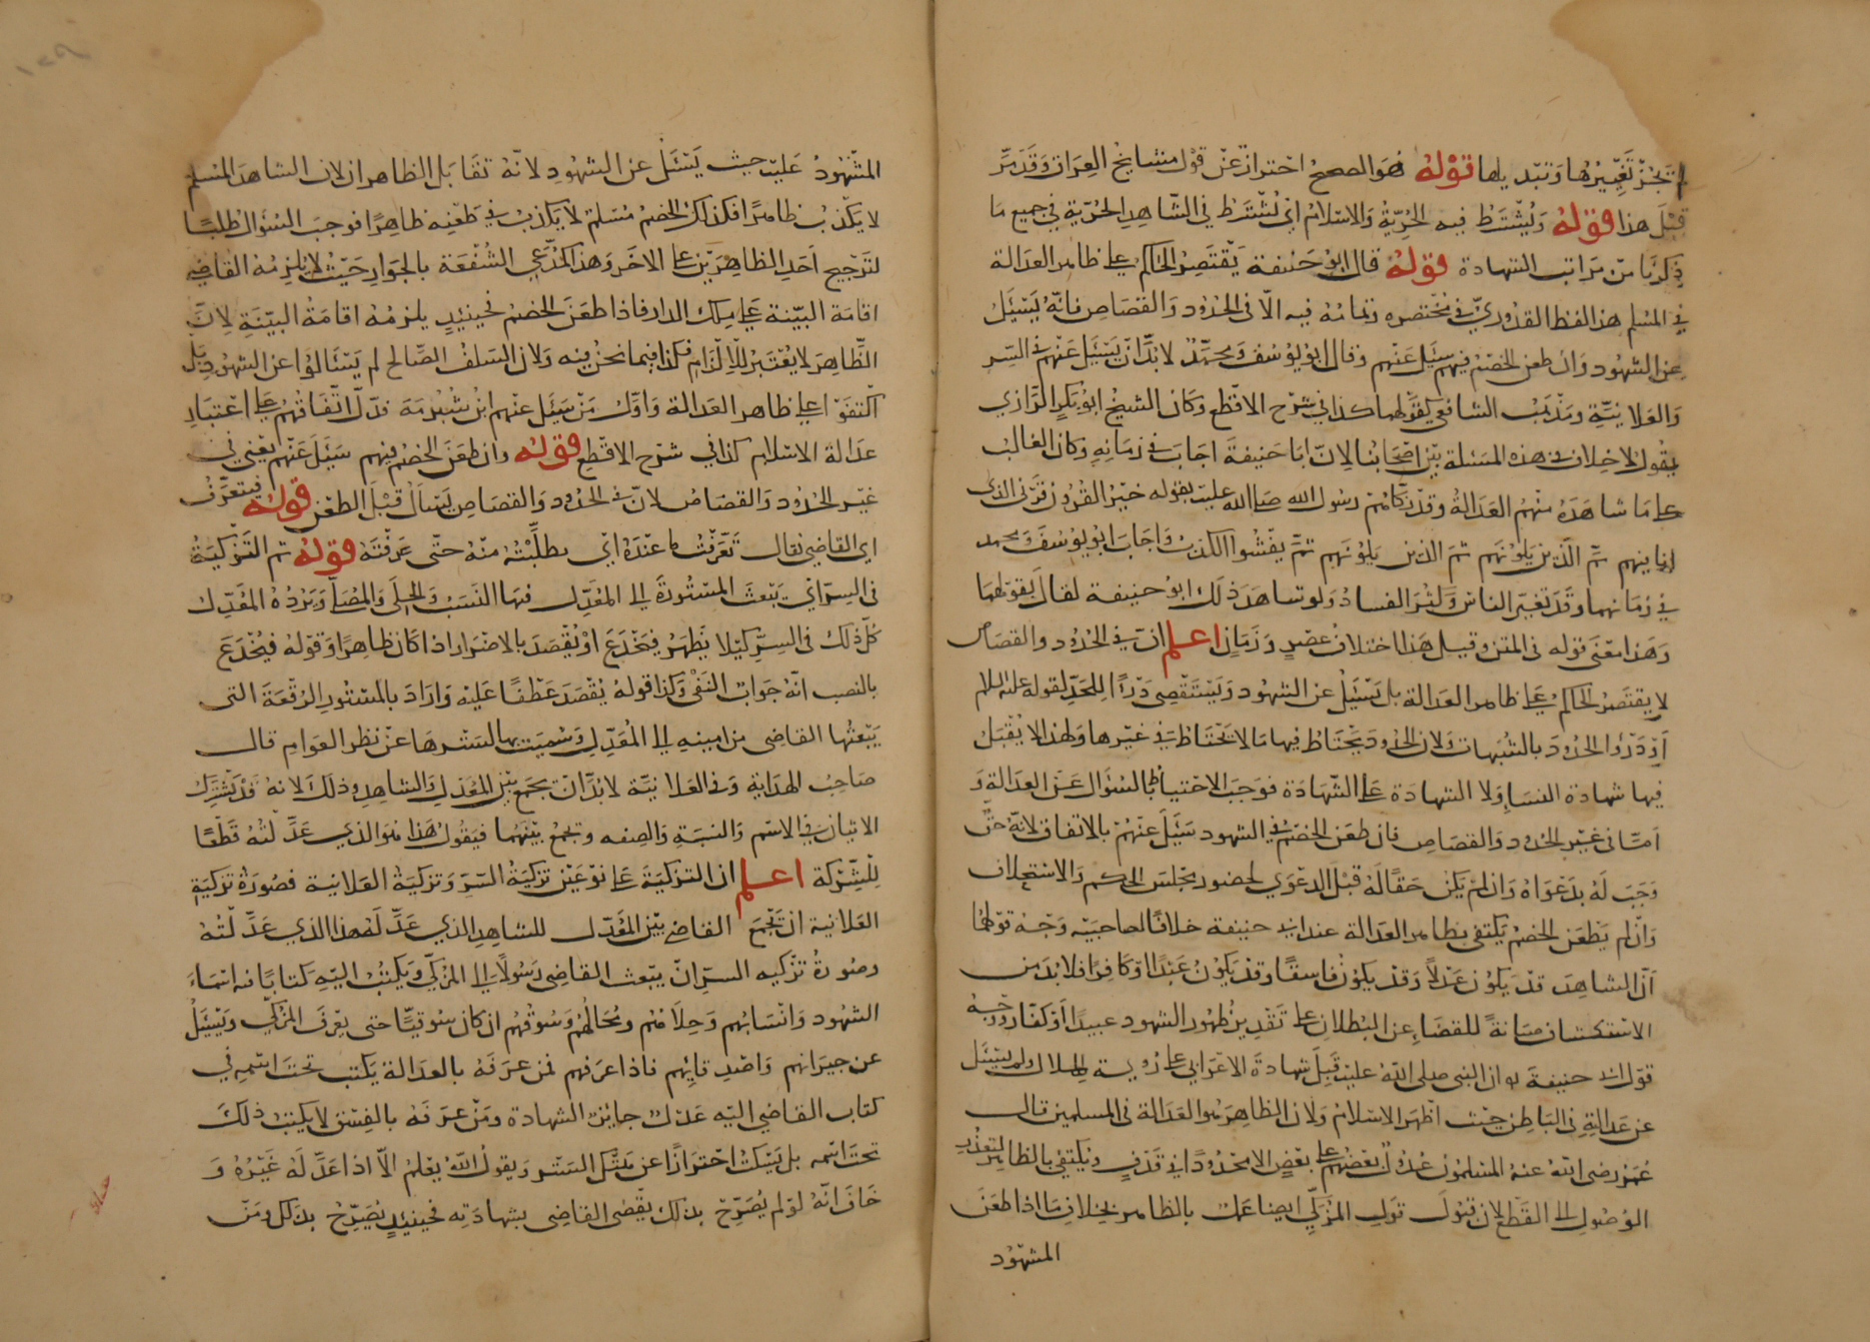 لم تجز تغييرها وتبديلها قوله هو الصحيح احتراز عن قول مشايخ العراق وقد مر
قبل هذا قوله ويشترط فيه الحرية والاسلام اي تشترط في الشاهد الحرية في جميع ما
ذكرنا من مراتب الشهادة قوله قال ابو حنيفة يقتصر الحاكم على ظاهر العدالة
في المسلم هذا لفظ القدوري في مختصره وتمامه فيه الا في الحدود والقصاص فانه يسئل
عن الشهود وان طعن الخصم فيهم سئل عنهم وقال ابو يوسف ومحمد لا بد ان يسئل عنهم في السر
والعلانية ومذهب الشافعي كقولهما كذا في شرح الاقطع وكان الشيخ ابو بكر الرازي
يقول لا خلاف في هذه المسئلة بين اصحابنا لان ابا حنيفة اجاب في زمانه وكان الغالب
على ما شاهده منهم العدالة وقد زكاهم رسول الله صلى الله عليه بقوله خير القرون قرني الذي
انا فيهم ثم الذين يلونهم ثم الذين يلونهم ثم يفشوا الكذب واجاب ابو يوسف ومحمد
في زمانهما وقد تغير الناس وكثر الفساد ولو شاهد ذلك ابو حنيفة لقال بقولهما
وهذا معنى قوله في المتن وقيل هذا اختلاف عصر وزمان اعلم ان في الحدود والقصاص
لا يقتصر الحاكم على ظاهر العدالة بل يسئل عن الشهود ويستقصى درءا للحد لقوله عليه السلام
ادرؤا الحدود بالشبهات ولان الحدود يحتاط فيها ما لا يحتاط في غيرها ولهذا لا يقبل
فيها شهادة النساء ولا الشهادة على الشهادة فوجب الاحتياط بالسؤال عن العدالة و
اما في غير الحدود والقصاص فان طعن الخصم في الشهود سئل عنهم بالاتفاق لانه حق
وجب له بدعواه وان لم يكن حقا له قبل الدعوى لحضور مجلس الحكم والاستحلاف
وان لم يطعن الخصم يكتفى بظاهر العدالة عند ابي حنيفة خلافا لصاحبيه وجه قولهما
ان الشاهد قد يكون عدلا وقد يكون فاسقا وقد يكون عبدا او كافرا فلا بد من
الاستكشاف صيانة للقضاء عن البطلان على تقدير ظهور الشهود عبيدا او كفارا ووجه
قول ابي حنيفة ان النبي صلى الله عليه قبل شهادة الاعرابي على رؤية الهلال ولم يسئل
عن عدالته في الباطن حيث اظهر الاسلام ولان الظاهر هو العدالة في المسلمين قال
عمر رضي الله عنه المسلمون عدول بعضهم على بعض الا محدودا في قذف ويكتفى بالظاهر لتعذر
الوصول الى القطع لان قبول قول المزكي ايضا عمل بالظاهر بخلاف ما اذا طعن
المشهود
المشهود عليه حيث يسئل عن الشهود لانه تقابل الظاهران لان الشاهد المسلم
لا يكذب ظاهرا فكذلك الخصم مسلم لا يكذب في طعنه ظاهرا فوجب السؤال طلبا
لترجيح احد الظاهرين على الاخر وهذا كمدعي الشفعة بالجوار حيث لا يلزمه القاضي
اقامة البينة على ملك الدار فاذا طعن الخصم فحينئذ يلزمه اقامة البينة لان
الظاهر لا يعتبر للالزام فكذا فيما نحن فيه ولان السلف الصالح لم يسئالوا عن الشهود بل
اكتفوا على ظاهر العدالة واول من سئل عنهم ابن شبرمة فدل اتفاقهم على اعتبار
عدالة الاسلام كذا في شرح الاقطع قوله وان طعن الخصم فيهم سئل عنهم يعني في
غير الحدود والقصاص لان في الحدود والقصاص يسأل قبل الطعن قوله فيتعرف
اي القاضي يقال تعرفت ما عنده اي تطلبته منه حتى عرفته قوله ثم التزكية
في السر ان يبعث المستورة الى المعدل فيها النسب والحلى والمصلى ويرده المعدل
كل ذلك في السر كيلا يظهر فيخدع او يقصد بالاضرار اذا كان ظاهرا وقوله فيخدع
بالنصب انه جواب النفي وكذا قوله يقصد عطفا عليه واراد بالمستور الرقعة التي
يبعثها القاضي من امينه الى المعدل وسميت بها لسترها عن نظر العوام قال
صاحب الهداية وفي العلانية لا بد ان يجمع بين المعدل والشاهد وذلك لانه قد يشترك
الاثنان في الاسم والنسبة والصفه ويجمع بينهما فيقول هذا هو الذي عدلته قطعا
للشركة اعلم ان التزكية على نوعين تزكية السر وتزكية العلانية فصورة تزكية
العلانية ان يجمع القاضي بين المعدل للشاهد الذي عدله هذا الذي عدلته
وصورة تزكيه السر ان يبعث القاضي رسولا الى المزكي ويكتب اليه كتابا فيه اسماء
الشهود وانسابهم وحلاهم ومحالهم وسوقهم ان كان سوقيا حتى يعرف المزكي ويسئل
عن جيرانهم واصدقائهم فاذا عرفهم فمن عرفه بالعدالة يكتب تحت اسمه في
كتاب القاضي اليه عدل جائز الشهادة ومن عرفه بالفسق لا يكتب ذلك
تحت اسمه بل يسكت احترازا عن هتك الستر ويقول الله يعلم الا اذا عدله غيره و
خاف انه لو لم يصرح بذلك يقضى القاضي بشهادته فحينئذ يصرح بذلك ومن